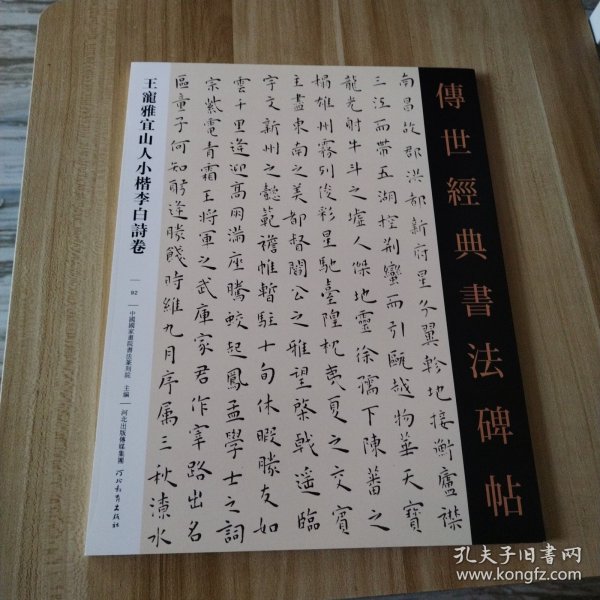 傳世經典書法碑帖
南昌故郡洪都新府星分翼軫地接衡廬襟
三江而帶五湖控荆蠻而引甌越物華天寶
龍光射牛斗之墟人傑地靈徐孺下陳蕃之
榻雄州霧列俊彩星馳臺隍枕夷夏之交賓
主盡東南之美都督閻公之雅望棨戟遥臨
宇文新州之懿範襜帷暫駐十旬休暇勝友如
雲千里逢迎高朋滿座騰蛟起鳳孟學士之詞
宗紫電青霜王將軍之武庫家君作宰路出名
區童子何知躬逢勝餞時維九月序属三秋潦水
王寵雅宜山人小楷李白詩卷
92
中國國家畫院書法篆刻院 主編
河北出版傳媒集團
河北教育出版社
孔夫子旧书网
www.kongfz.com